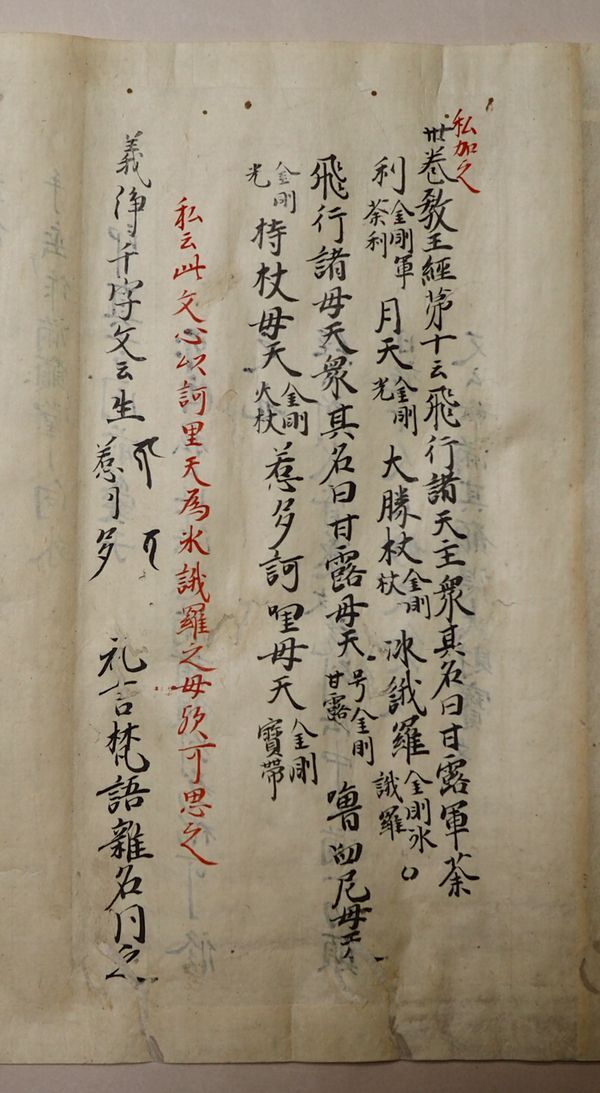 私加之
卅卷教王經第十云飛行諸天主衆其名曰甘露軍荼
利金剛軍荼利 月天金剛光 大勝杖金剛杖 冰誐羅金剛冰誐羅
飛行諸母天衆其名曰甘露母天号金剛甘露 嚕呬尼母天
金剛光 持杖母天金剛大杖 惹多訶哩母天金剛寶帶
私云此文心以訶里天為氷誐羅之母歟可思之
義淨千字文云生 惹多 礼言梵語雜名同之